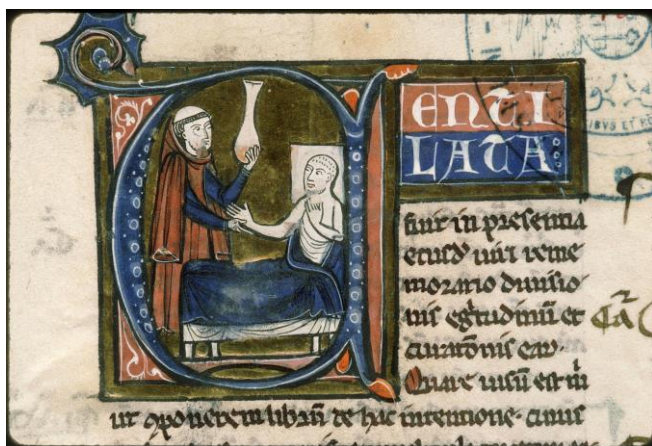 UENTI
LATA:
fuit in presentia
eiusd̕ uiri reme
moratio diuisio
nis eg̕tudinū et
curatōnis eaꝝ·
Quare uisū est m̄
ut ꝯponerem librū de hac intentione· cuius